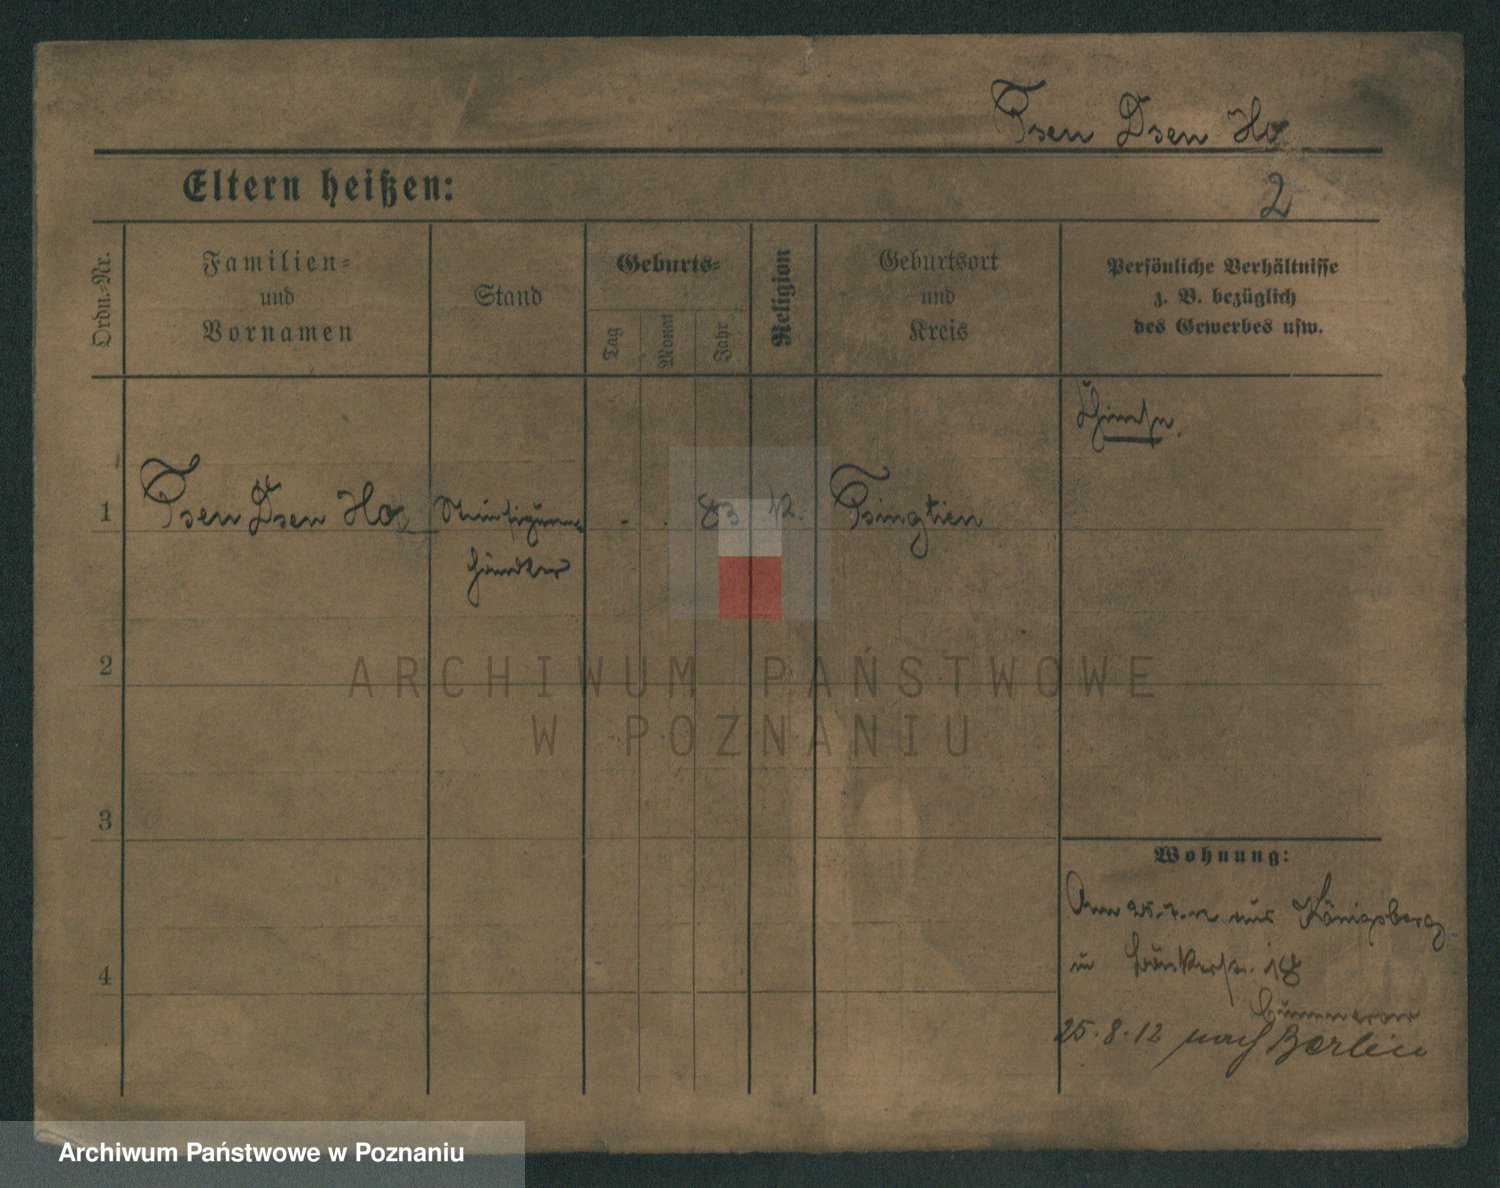 Tsen Dsen Ho
Eltern heißen:
2
Ordn.-Nr.
Familien-
und
Vornamen
Stand
Geburts-
Tag
Monat
Jahr
Religion
Geburtsort
und
Kreis
Persönliche Verhältnisse
z. B. bezüglich
des Gewerbes usw.
1
Tsen Dsen Ho
händler
83
Tsingtien
2
3
4
Wohnung:
Am 25.7.12 aus Königsberg
in Bäckerstr. 18
25.8.12 nach Berlin
ARCHIWUM PAŃSTWOWE
W POZNANIU
Archiwum Państwowe w Poznaniu